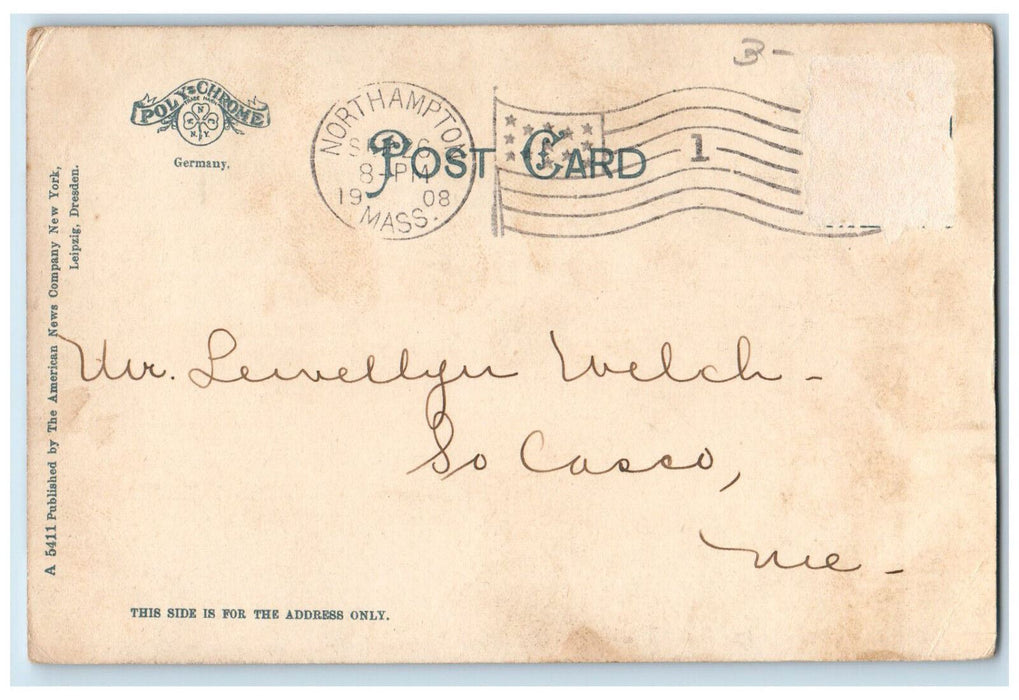 3-
POLY-CHROME
TRADE MARK
N
N.Y.
Germany.
NORTHAMPTON
8-PM
19 08
MASS.
POST CARD
1
A 5411 Published by The American News Company New York,
Leipzig, Dresden.
Mr. Lewellyn Welch -
So Casco,
Me -
THIS SIDE IS FOR THE ADDRESS ONLY.